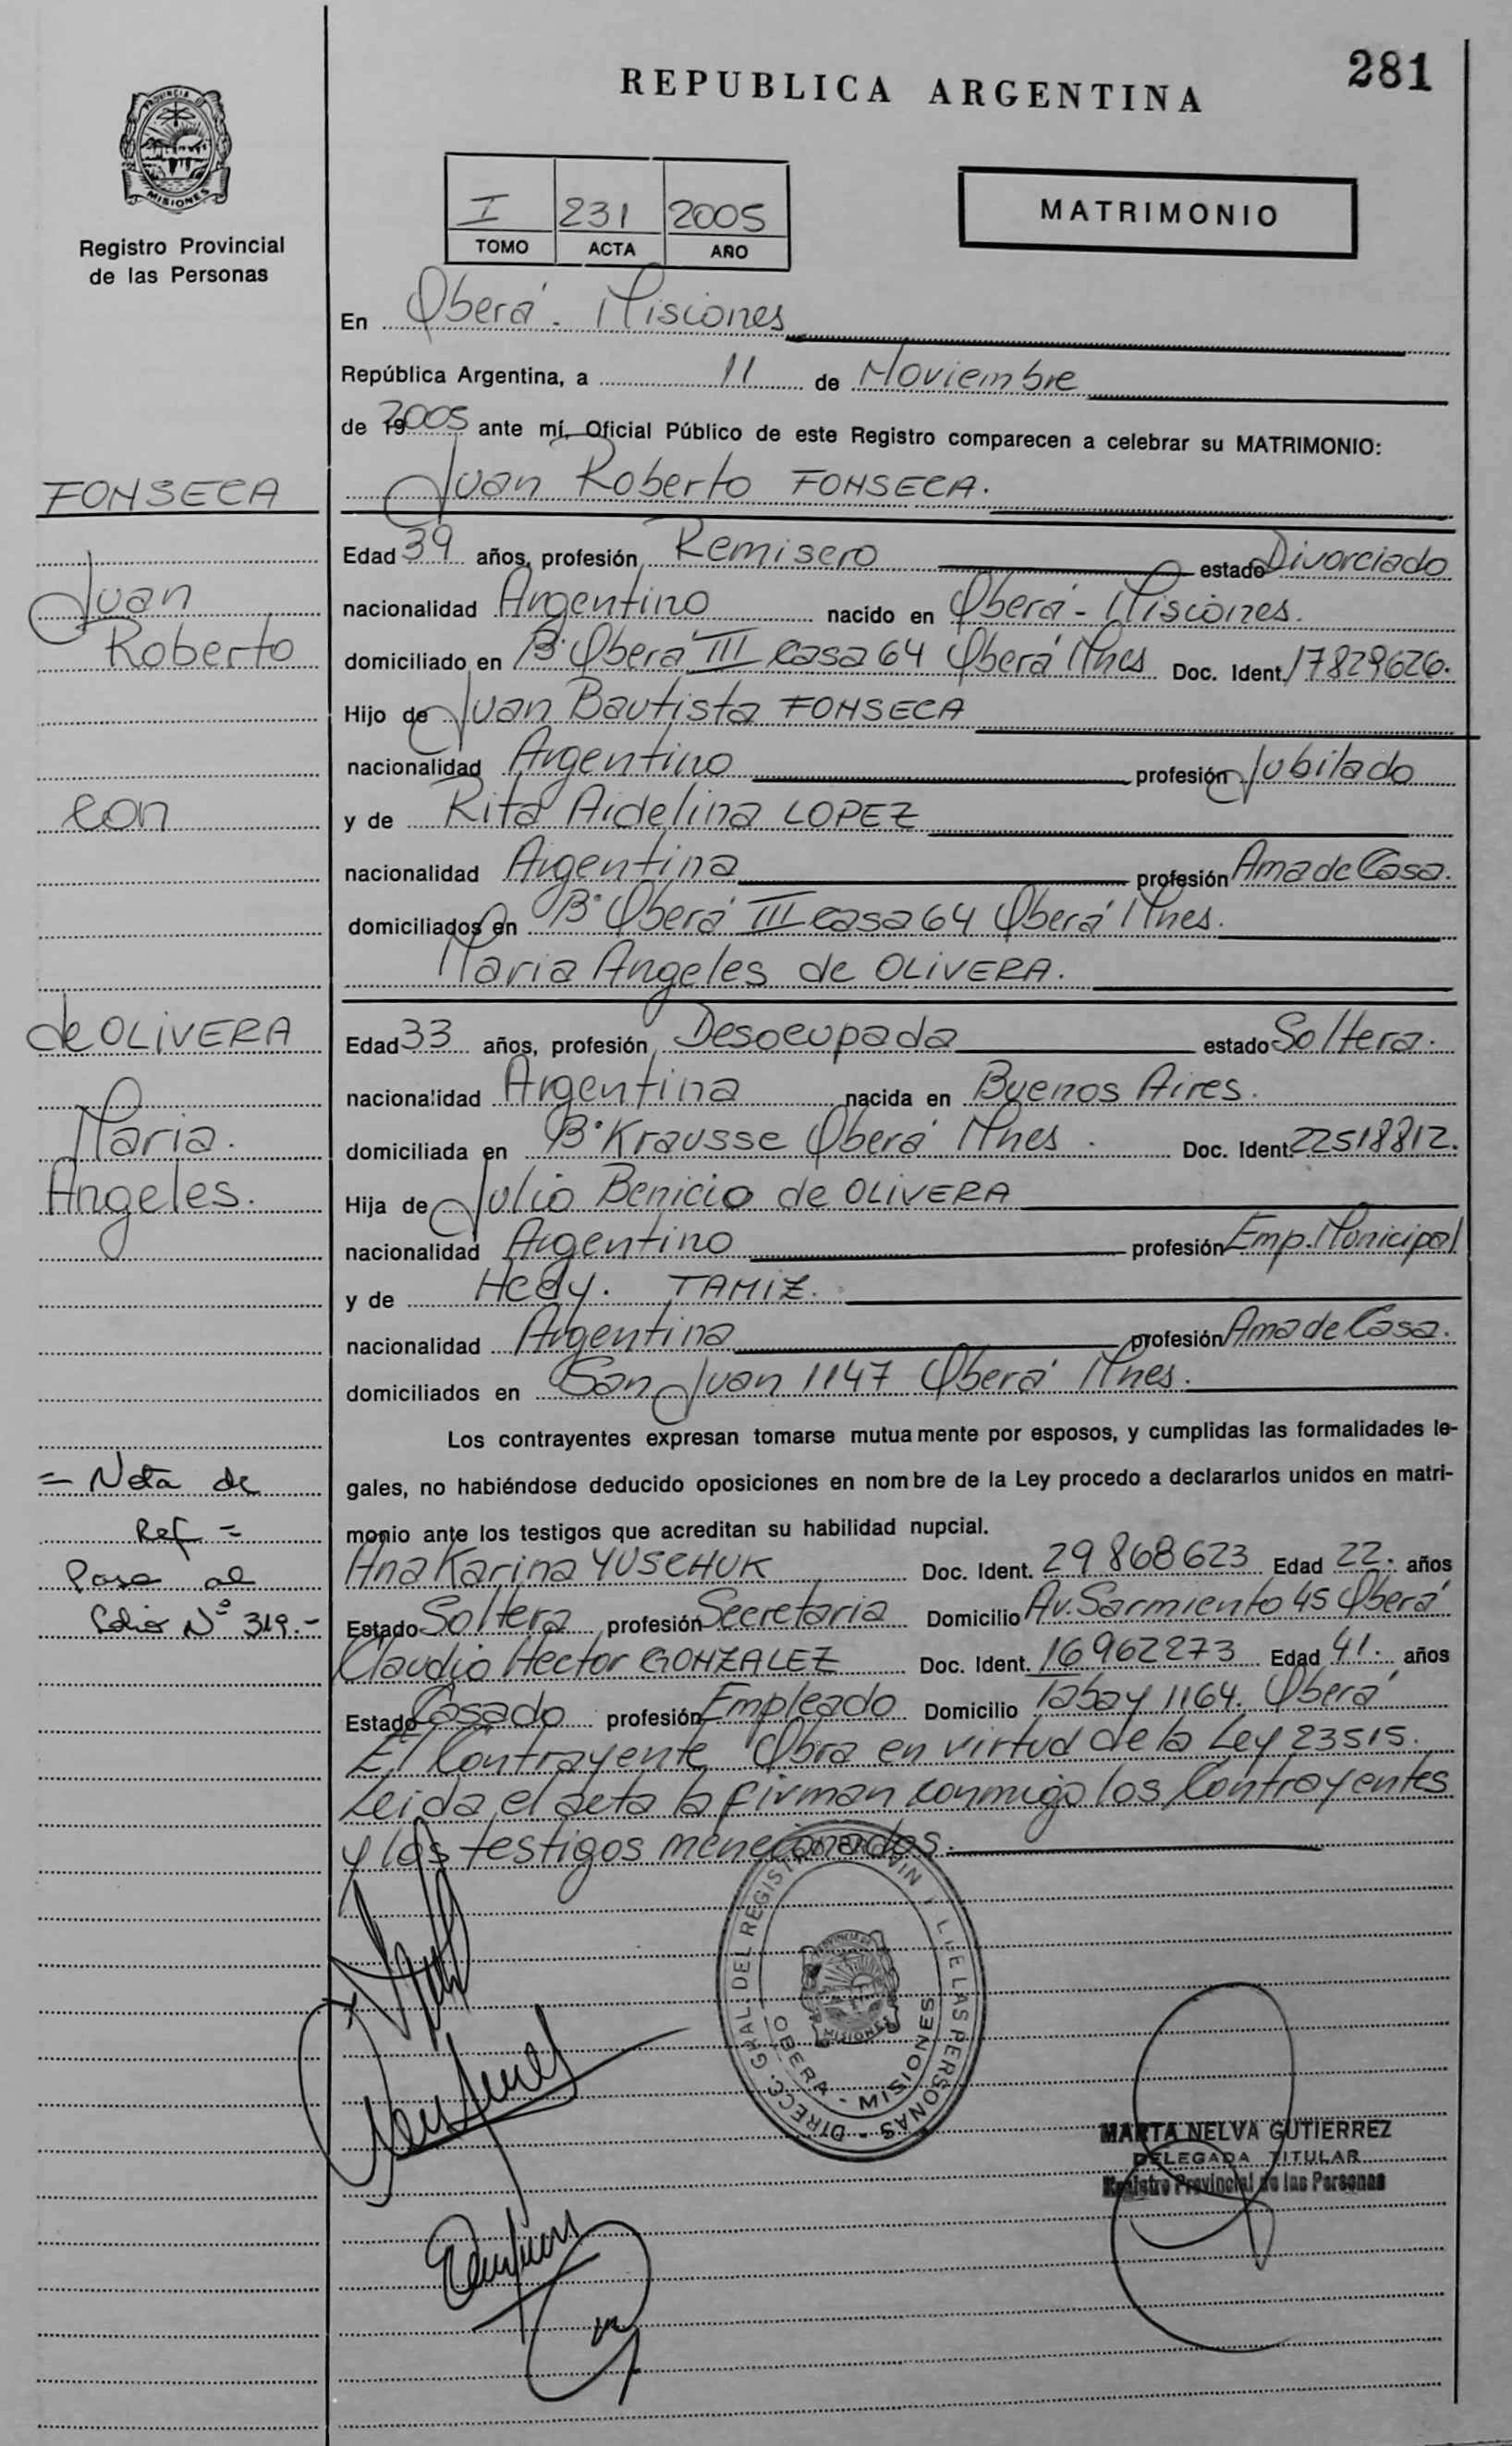 281
REPUBLICA ARGENTINA
PROVINCIA D
MISIONES
Registro Provincial
de las Personas
I 231 2005
TOMO ACTA AÑO
MATRIMONIO
En Oberá. Misiones
República Argentina, a 11 de Noviembre
de 2005 ante mí, Oficial Público de este Registro comparecen a celebrar su MATRIMONIO:
FONSECA
Juan
Roberto
con
de OLIVERA
Maria.
Angeles.
= Nota de
Ref =
Pasa al
Folio Nº 319.-
Juan Roberto FONSECA.
Edad 39 años, profesión Remisero estado Divorciado
nacionalidad Argentino nacido en Oberá - Misiones.
domiciliado en Bº Oberá III casa 64 Oberá Mnes Doc. Ident. 17829626.
Hijo de Juan Bautista FONSECA
nacionalidad Argentino profesión Jubilado
y de Rita Aidelina LOPEZ
nacionalidad Argentina profesión Ama de Casa.
domiciliados en Bº Oberá III casa 64 Oberá Mnes.
Maria Angeles de OLIVERA.
Edad 33 años, profesión Desocupada estado Soltera.
nacionalidad Argentina nacida en Buenos Aires.
domiciliada en Bº Krausse Oberá Mnes. Doc. Ident. 22518812.
Hija de Julio Benicio de OLIVERA
nacionalidad Argentino profesión Emp. Municipal
y de Hedy. TAMIZ.
nacionalidad Argentina profesión Ama de Casa.
domiciliados en San Juan 1147 Oberá Mnes.
Los contrayentes expresan tomarse mutuamente por esposos, y cumplidas las formalidades le-
gales, no habiéndose deducido oposiciones en nombre de la Ley procedo a declararlos unidos en matri-
monio ante los testigos que acreditan su habilidad nupcial.
Ana Karina YUSCHUK Doc. Ident. 29868623 Edad 22. años
Estado Soltera profesión Secretaria Domicilio Av. Sarmiento 45 Oberá
Claudio Hector GONZALEZ Doc. Ident. 16962273 Edad 41. años
Estado Casado profesión Empleado Domicilio Tabay 1164. Oberá
El Contrayente Obra en virtud de la Ley 23515.
Leida el acta la firman conmigo los Contrayentes
y los testigos mencionados.
DIRECC. GRAL. DEL REGIST PROVIN DE LAS PERSONAS
OBERA - MISIONES
PROVINCIA DE
MISIONES
MARTA NELVA GUTIERREZ
DELEGADA TITULAR
Registro Provincial de las Personas